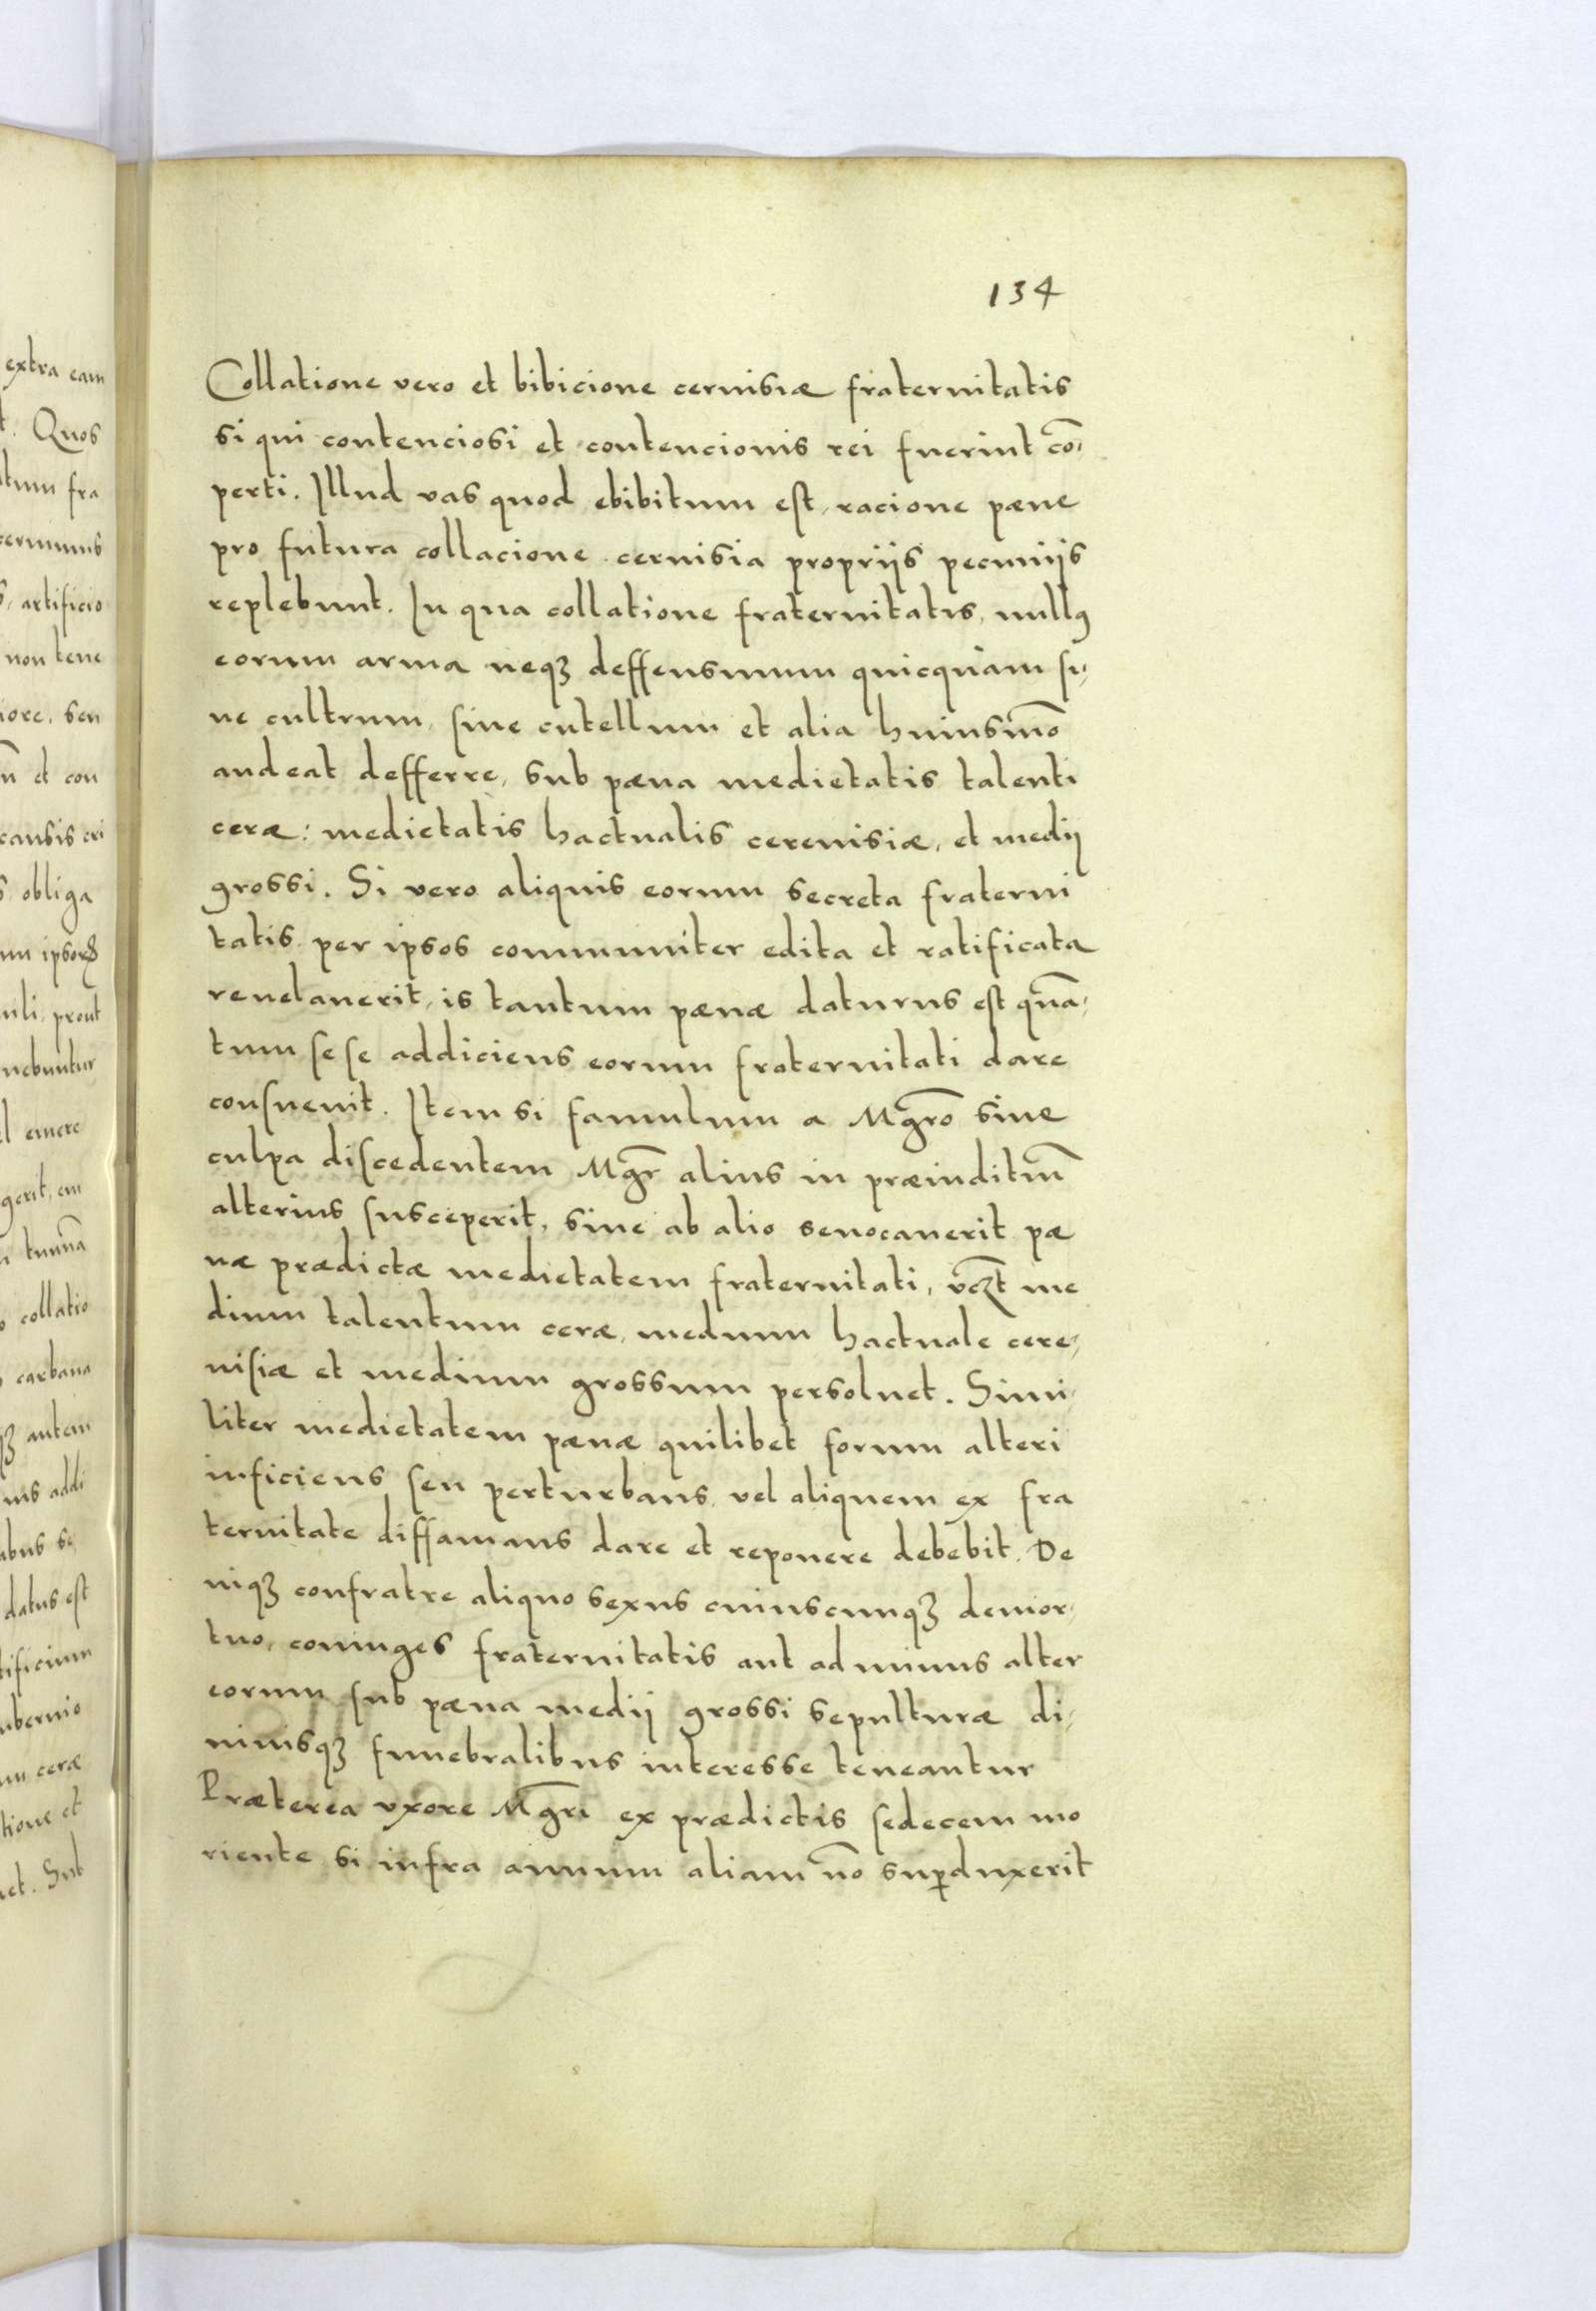 134
extra eam
t. Quos
tum fra
terminus
s, artificio
non tene
iore, seu
n̄ et con
causis cri
s obliga
um ipsoꝝ
uli, prout
nebuntur
l emere
gerit, em
collatio
carbana
qꝫ autem
ius addi
ibus se
datus est
tificium
ubernio
um ceræ
tione et
et. Sub
Collatione vero et bibicione ceruisiæ fraternitatis
si qui contenciosi et contencionis rei fuerint cō-
perti. Illud vas quod ebibitum est, racione pæne
pro futura collacione ceruisia proprijs pecunijs
replebunt. In qua collatione fraternitatis, nullꝰ
eorum arma neqꝫ deffensiuum quicquam si-
ue cultrum, siue cutellum et alia huiusmō
audeat defferre, sub pæna medietatis talenti
ceræ: medietatis hactualis cereuisiæ, et medij
grossi. Si vero aliquis eorum secreta fraterni
tatis per ipsos communiter edita et ratificata
reuelauerit, is tantum pænæ daturus est quā-
tum sese addiciens eorum fraternitati dare
consueuit. Item si famulum a Mgrō sine
culpa discedentem Mgr̄ alius in præiuditiū
alterius susceperit, siue ab alio seuocauerit pæ
næ prædictæ medietatem fraternitati, vꝫt me
dium talentum ceræ, medium hactuale cere-
uisiæ et medium grossum persoluet. Simi-
liter medietatem pænæ quilibet forum alteri
inficiens seu perturbans, vel aliquem ex fra
ternitate diffamans dare et reponere debebit. De
niqꝫ confratre aliquo sexus cuiuscunqꝫ demor-
tuo, coniuges fraternitatis aut ad minus alter
eorum sub pæna medij grossi sepulturæ di-
uinisqꝫ funebralibus interesse teneantur
Præterea vxore Mgrī ex prædictis sedecem mo
riente si infra annum aliam nō suꝑduxerit